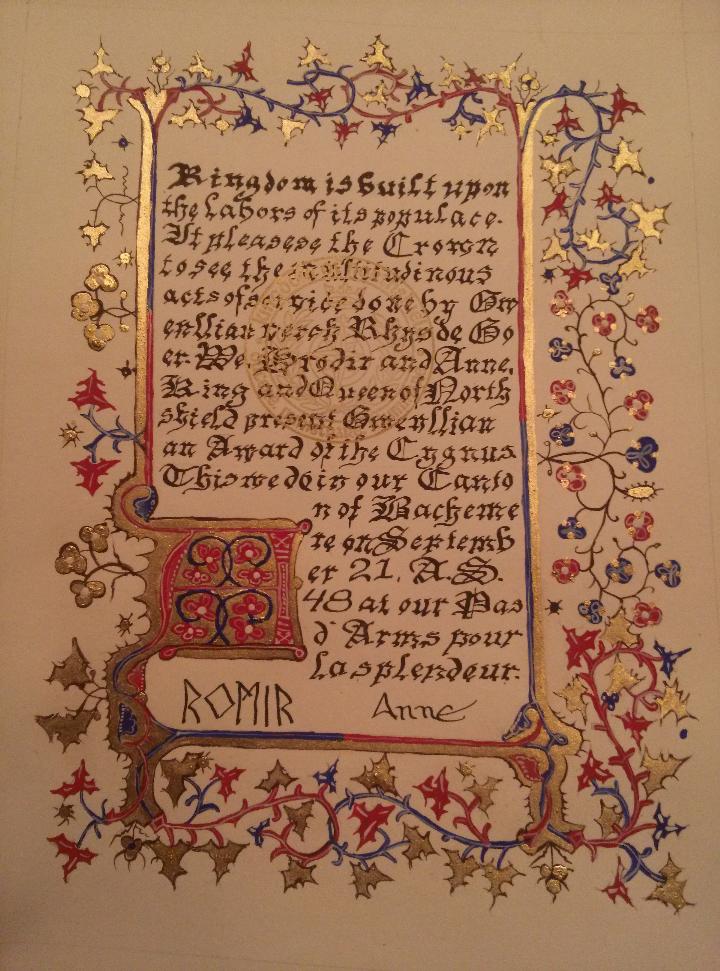 Kingdom is built upon
the labors of its populace.
It pleasese the Crown
to see the multitudinous
acts of service done by Gw
enllian verch Rhys de Go
er. We, Hrodir and Anne,
King and Queen of North
shield present Gwenllian
an Award of the Cygnus
This we do in our Canto
n of Vacheme
re on Septemb
er 21, A.S.
48 at our Pas
d'Arms pour
la splendeur.
ROMIR Anne